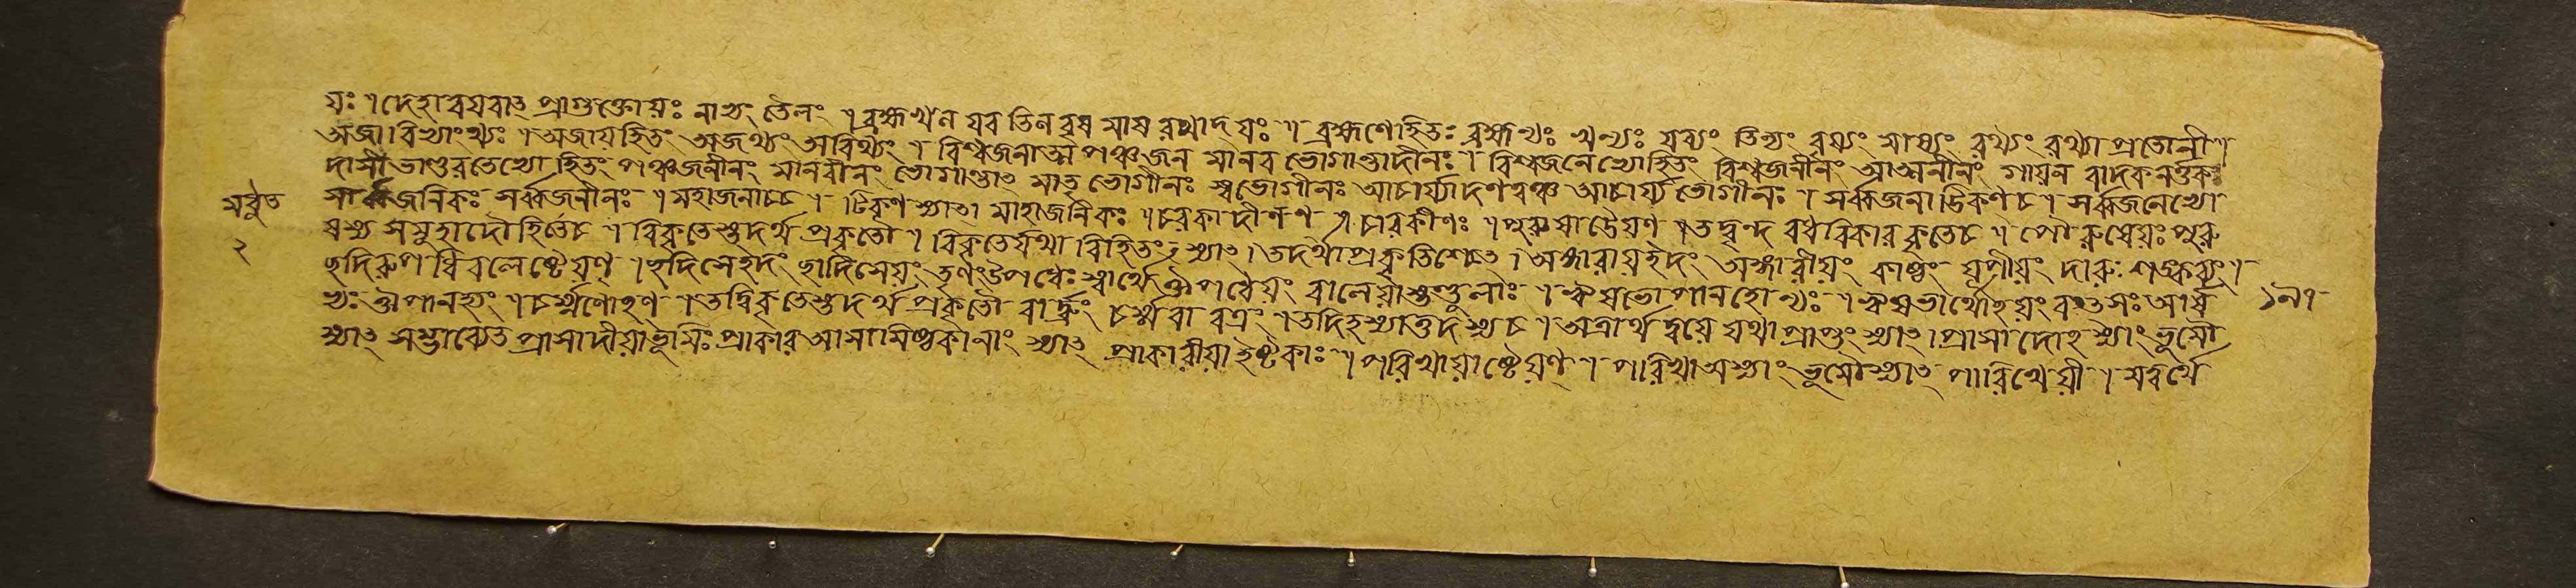 যঃ । দেহাবযবাৎ প্রাগুক্তোযঃ নাখ্যং তৈলং । ব্রহ্ম খল যব তিল বৃষ মাষ রথাদযঃ । ব্রহ্মণেহিতঃ ব্রহ্মণ্যঃ খল্যঃ যব্যং তিল্যং বৃষ্যং মাষ্যং রথ্যং রথ্যা প্রতোলী ।
অজাবিথ্যাং থ্যঃ । অজায হিতং অজথ্যং অবিথ্যং । বিশ্বজনাত্ম পঞ্চজন মানব ভোগান্তাদীনঃ । বিশ্বজনেভ্যোহিতং বিশ্বজনীনং আত্মনীনং গায়ন বাদক নর্ত্তক
দাসী ভাণ্ডরতেভ্যো হিতং পঞ্চজনীনং মানবীনং ভোগান্তাৎ মাতৃভোগীনঃ স্বভোগীনঃ আচার্য্যাদণত্বঞ্চ আচার্য্যভোগীনঃ । সর্ব্বজনাট্ঠিকণ চ । সর্ব্বজনেভ্যো
সার্ব্বজনিকঃ সর্ব্বজনীনঃ । মহাজনাচ্চ । ঠিকণ স্যাত । মাহাজনিকঃ । চরকাদীনণ ৎ চারকীণঃ । পুরুষাড্ঢেযণ । তদ্বৃন্দ বধবিকার কৃতে চ । পৌরুষেযঃ পুরু
ষস্য সমুহাদৌহিতেচ । বিকৃতেস্তদর্থ প্রকৃতৌ । বিকৃতের্যথা বিহিতং স্যাৎ । তদর্থা প্রকৃতিশ্চেৎ । অঙ্গারায ইদং অঙ্গারীযং কাষ্ঠং যূপীযং দারু শঙ্কব্যং ।
ছদিরুপধি বলেষ্ঠেযণ্ । ছদিষেইদং ছাদিষেযং তৃণং উপধেঃ স্বার্থে ঔপধেযং বালেযাস্তণ্ডুলাঃ । ঋষভোপানহোণ্যঃ । ঋষভার্থোঽযং বৎসঃ আর্ষ
ভ্যঃ ঔপানহ্যং । চর্ম্মণোঽণ । তদ্বিকৃতেস্তদর্থ প্রকৃতৌ বার্দ্ধ্রং চর্ম্ম বা বত্রং । তদিহ স্যাত্তদস্য চ । অত্রার্থ দ্বযে যথা প্রাপ্তং স্যাৎ । প্রাসাদোঽস্যাং ভূমৌ
স্যাৎ সম্ভাব্যেত প্রাসাদীযা ভূমিঃ প্রাকার আসামিষ্টকানাং স্যাৎ প্রাকারীযা ইষ্টকাঃ । পরিখাযাষ্ঠেযণ্ । পরিখা অস্যাং ভূমৌ স্যাৎ পারিখেযী । মত্বর্থে
২
১৯৭